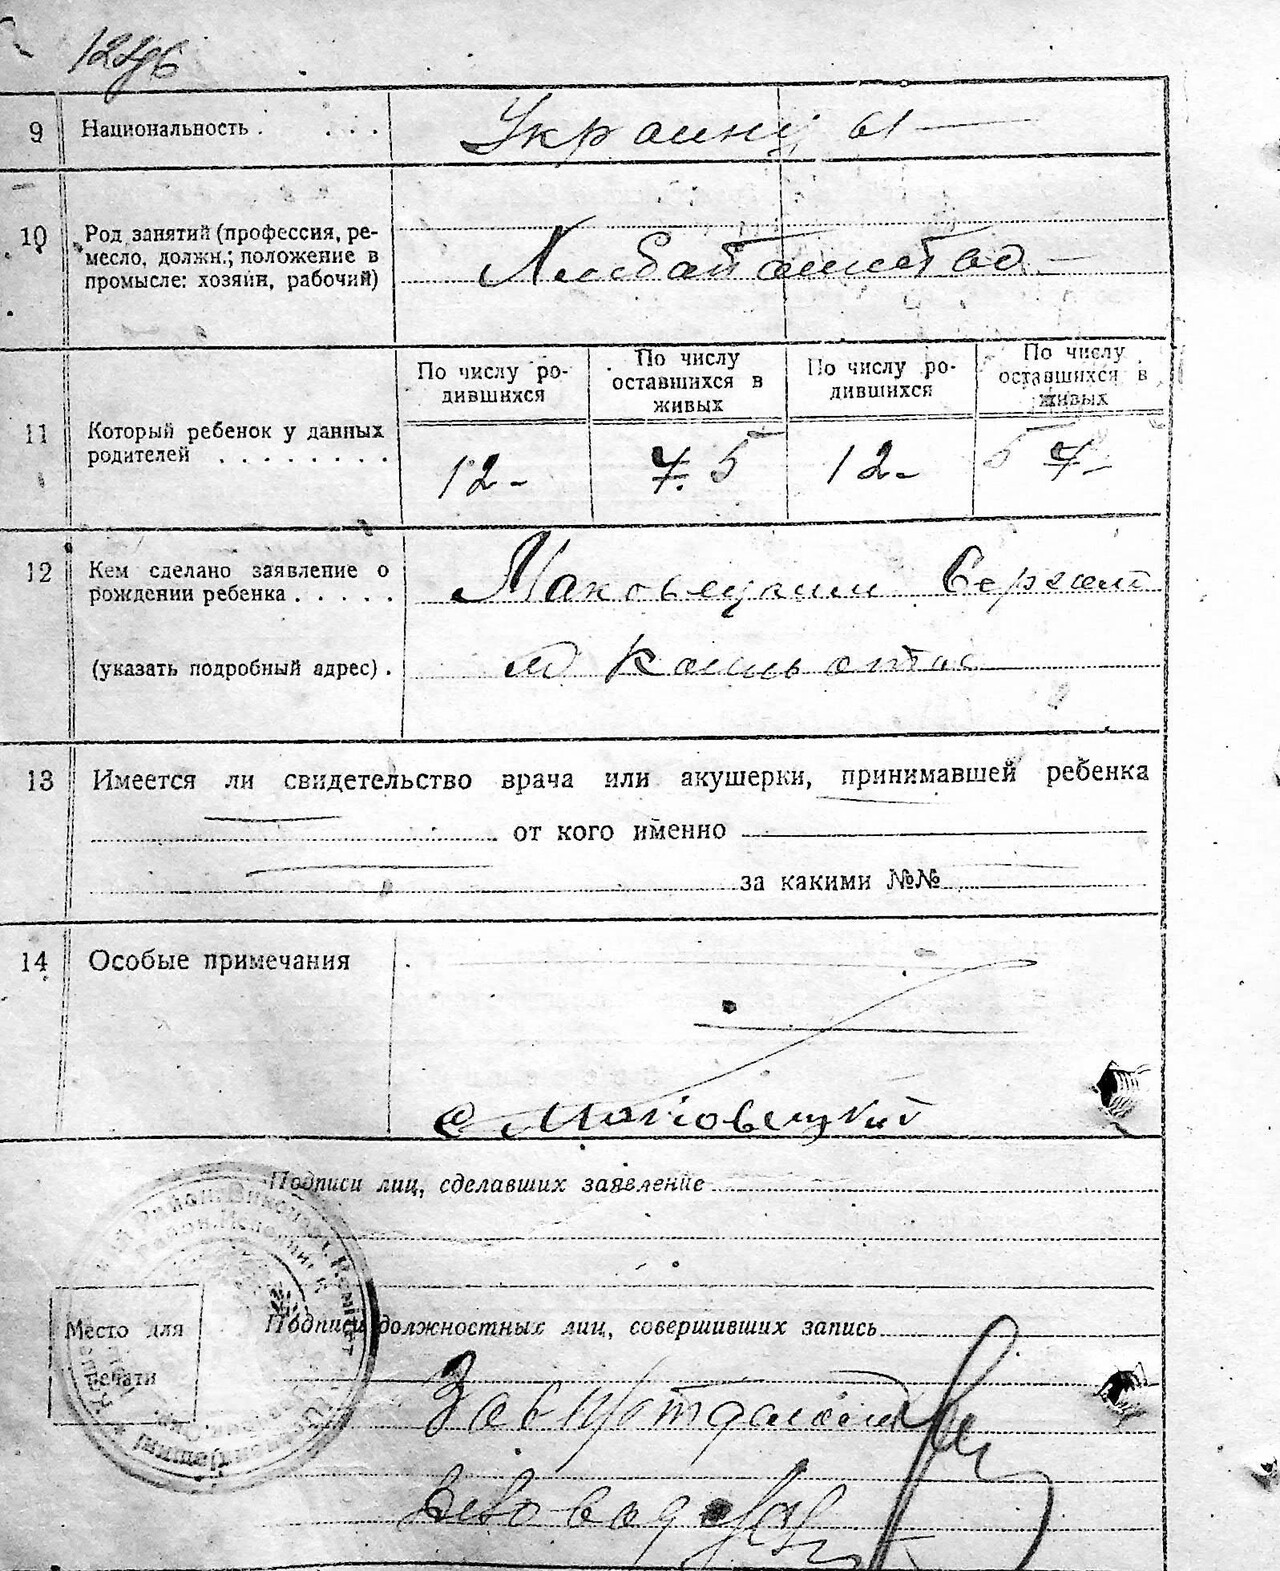 9 Национальность . . . . Украинцы
10 Род занятий (профессия, ре-
месло, должн.; положение в
промысле: хозяин, рабочий)
По числу ро-
дившихся
По числу
оставшихся в
живых
По числу ро-
дившихся
По числу
оставшихся в
живых
11 Который ребенок у данных
родителей . . . . . . . .
12- 7. 5 12- 5 7-
12 Кем сделано заявление о
рождении ребенка . . . . .
Маковецким Сергеем
(указать подробный адрес) .
13 Имеется ли свидетельство врача или акушерки, принимавшей ребенка
от кого именно
за какими №№
14 Особые примечания
С Маковецкий
Подписи лиц, сделавших заявление
Место для
печати
Подписи должностных лиц, совершивших запись